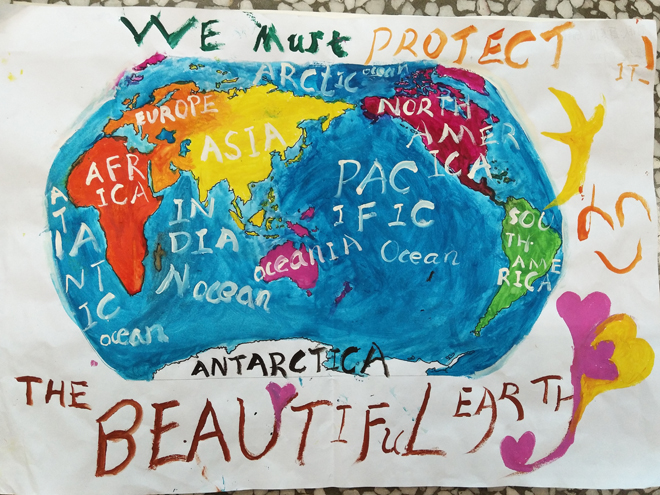 WE Must PROTECT
IT!
ARCtIC ocean
EUROPE
ASIA
NORTH
AMER
ICA
AFR
ICA
PAC
IFIC
Ocean
A
T
lA
NT
IC
ocean
IN
DIA
N ocean
oceanIA
SOU
TH-
AME
RICA
ANTARCTICA
THE BEAUTIFuL EARTH